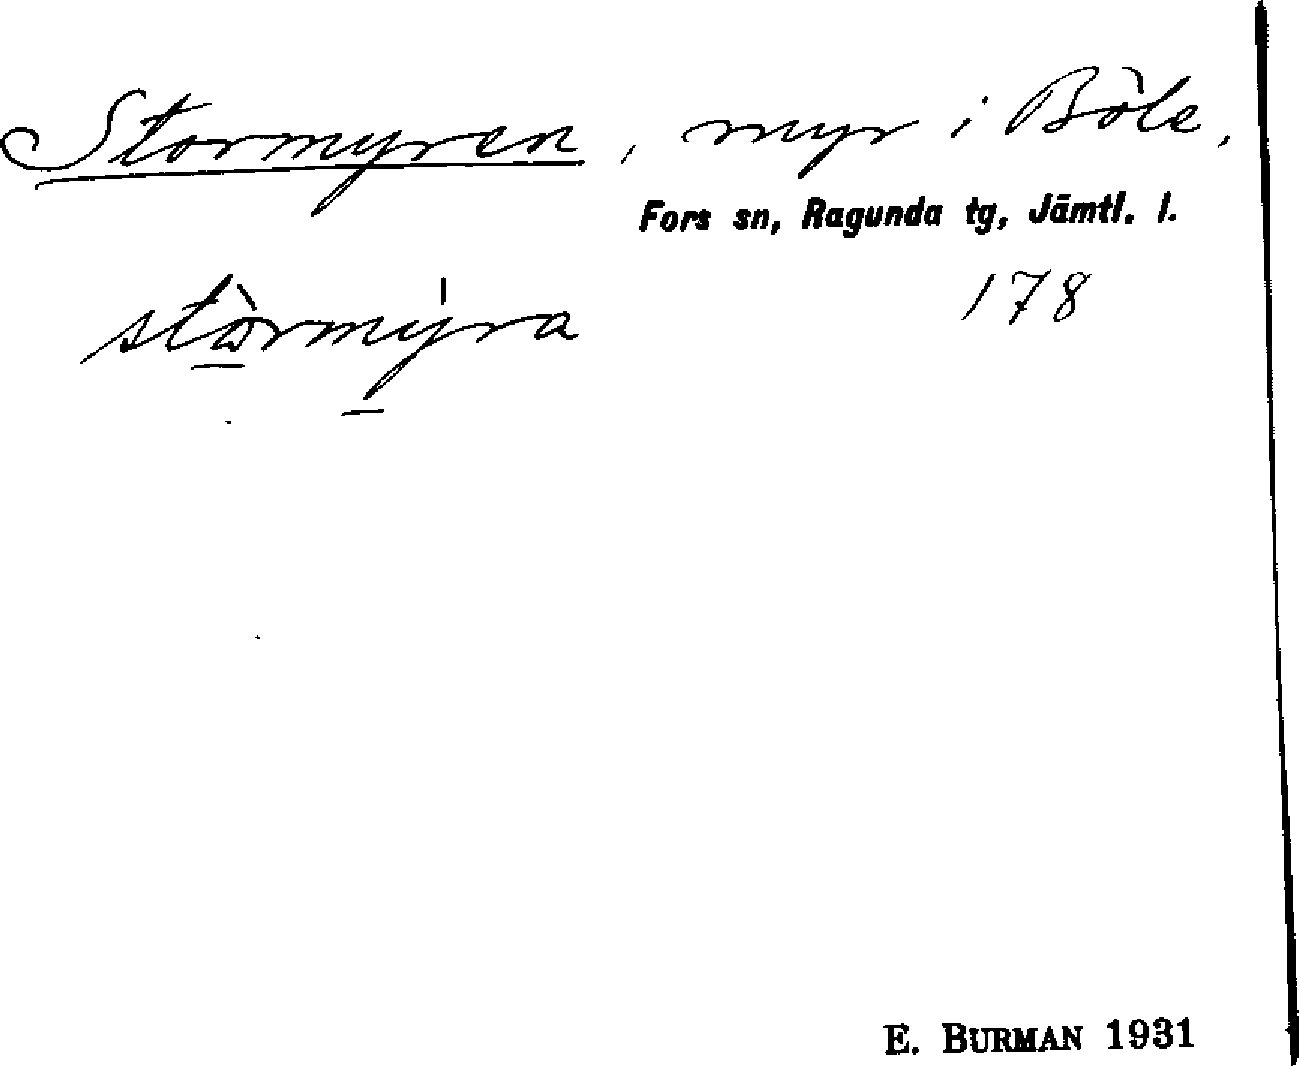 Stormyren, myr i Böle,
Fors sn, Ragunda tg, Jämtl. l.
178
stòrmýra
E. BURMAN 1931